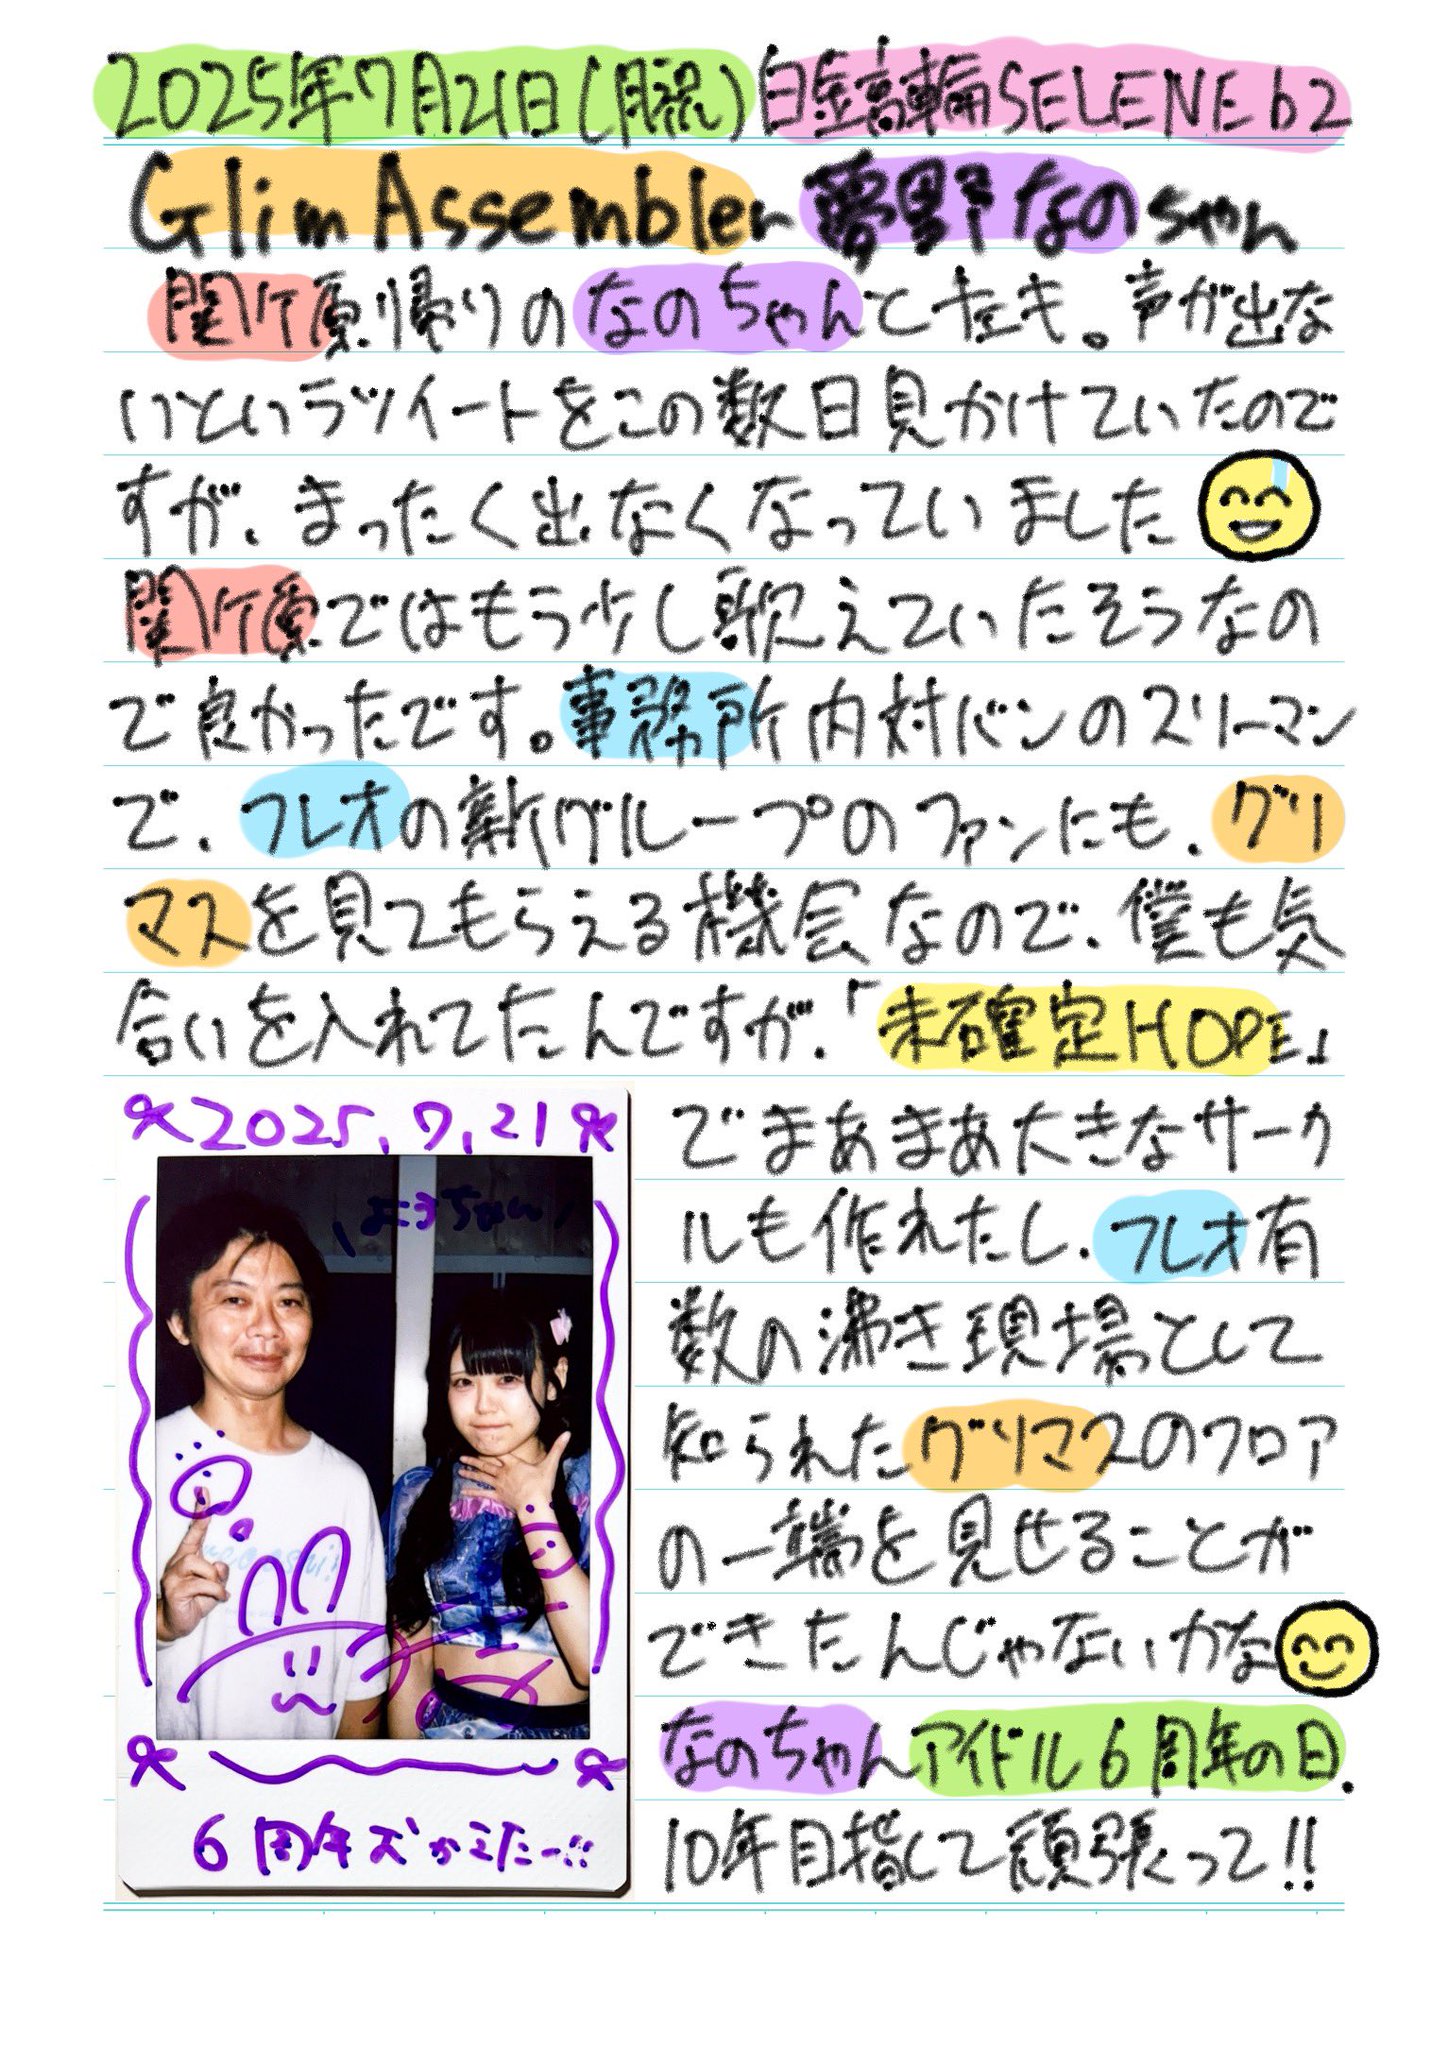 2025年7月21日(月祝)白金高輪SELENE b2
Glim Assembler 夢野なのちゃん
関ケ原帰りのなのちゃんとチェキ。声が出な
いというツイートをこの数日見かけていたので
すが、まったく出なくなっていました
関ケ原ではもう少し歌えていたそうなの
で良かったです。事務所内対バンのスリーマン
で、フレオの新グループのファンにも、グリ
マスを見てもらえる機会なので、僕も気
合いを入れてたんですが、「未確定HOPE」
でまあまあ大きなサーク
ルも作れたし、フレオ有
数の沸き現場として
知られたグリマスのフロア
の一端を見せることが
できたんじゃないかな
なのちゃんアイドル6周年の日、
10年目指して頑張って!!
2025.7.21
6周年ズ